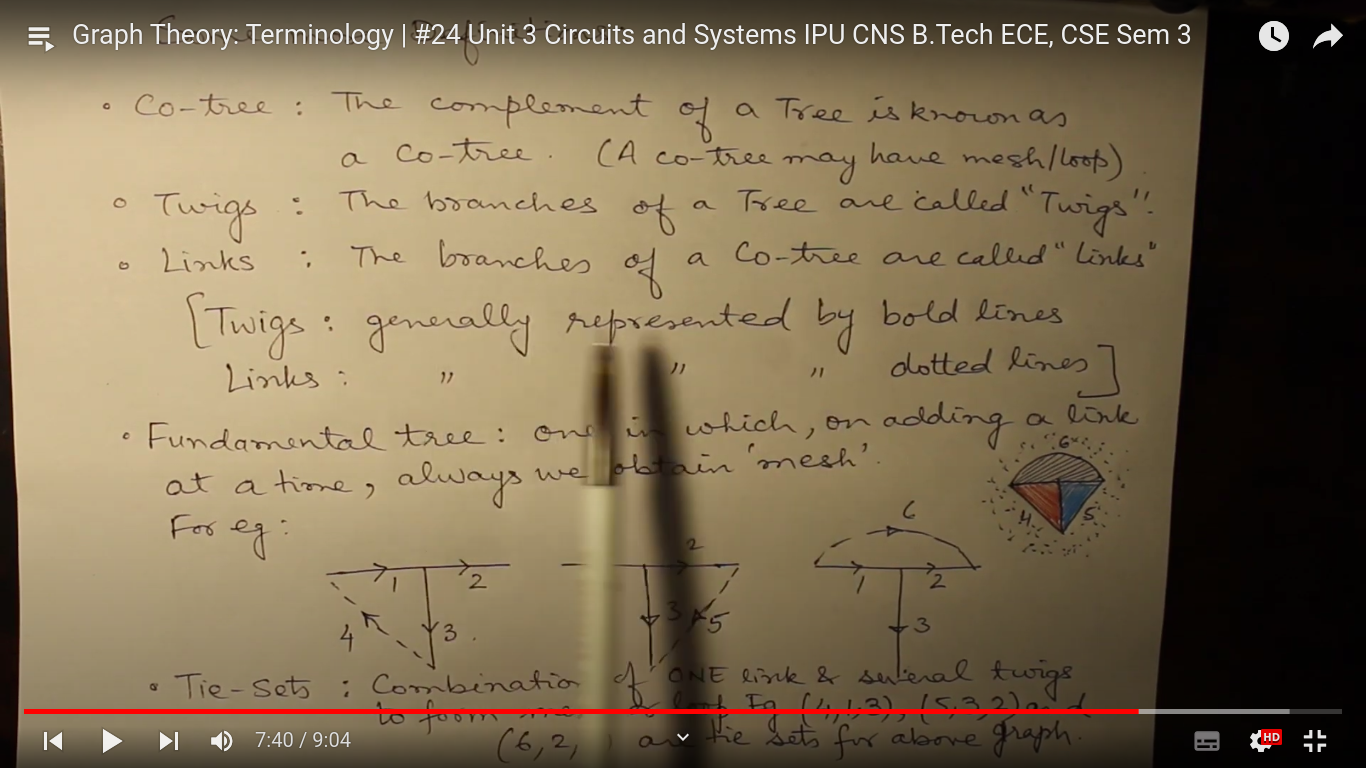 Graph Theory: Terminology | #24 Unit 3 Circuits and Systems IPU CNS B.Tech ECE, CSE Sem 3
• Co-tree : The complement of a Tree is known as
a Co-tree. (A co-tree may have mesh/loop)
o Twigs : The branches of a Tree are called "Twigs".
o Links : The branches of a Co-tree are called "links"
[Twigs : generally represented by bold lines
Links : " " " dotted lines]
• Fundamental tree : one in which, on adding a link
at a time, always we obtain 'mesh'.
For eg :
6
4 5
1 2 3 4
2 3 5
6 1 2 3
• Tie-Sets : Combination of ONE link & several twigs
to form loop Eg (4,1,3), (5,3,2) and
(6,2, ) are tie sets for above graph.
7:40 / 9:04
HD